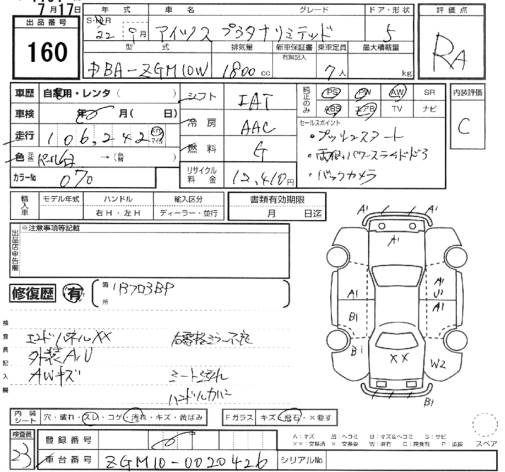 7月17日
出品番号
160
年式 車名 グレード ドア・形状
22年9月 アイシス プラタナリミテッド 5
型式 排気量 新車保証書 乗車定員 最大積載量
有取記入
DBA-ZGM10W 1800cc 7人 kg
評価点
RA
車歴 自家用・レンタ( )
車検 年 月( 日)
走行 106,242
色 パール白 →(替 )
カラーNo 070
シフト IAT
冷房 AAC
燃料 G
リサイクル料金 12,410円
純正のみ PS PW AW SR
ABS エアB TV ナビ
セールスポイント
・プッシュスタート
・両側パワースライドドア
・バックカメラ
内装評価
C
輸入車 モデル年式 ハンドル 輸入区分
右H・左H ディーラー・並行
書類有効期限
月 日迄
出品店申告欄
※注意事項等記載
修復歴 有 箇所
検査員記入欄
エンドパネルXX
外装A,U
AWキズ
シート汚れ
ハンドルカバー
A1
A1
A1
U1
A1
B1
B1
XX
W2
B1
内装シート 穴・破れ・スレ・コゲ・汚れ・キズ・黄ばみ
Fガラス キズ・飛石・X要す
A:キズ U:ヘコミ B:キズ&ヘコミ S:サビ
スペア
検査員
23
登録番号
車台番号 ZGM10-0020426
シリアルNo